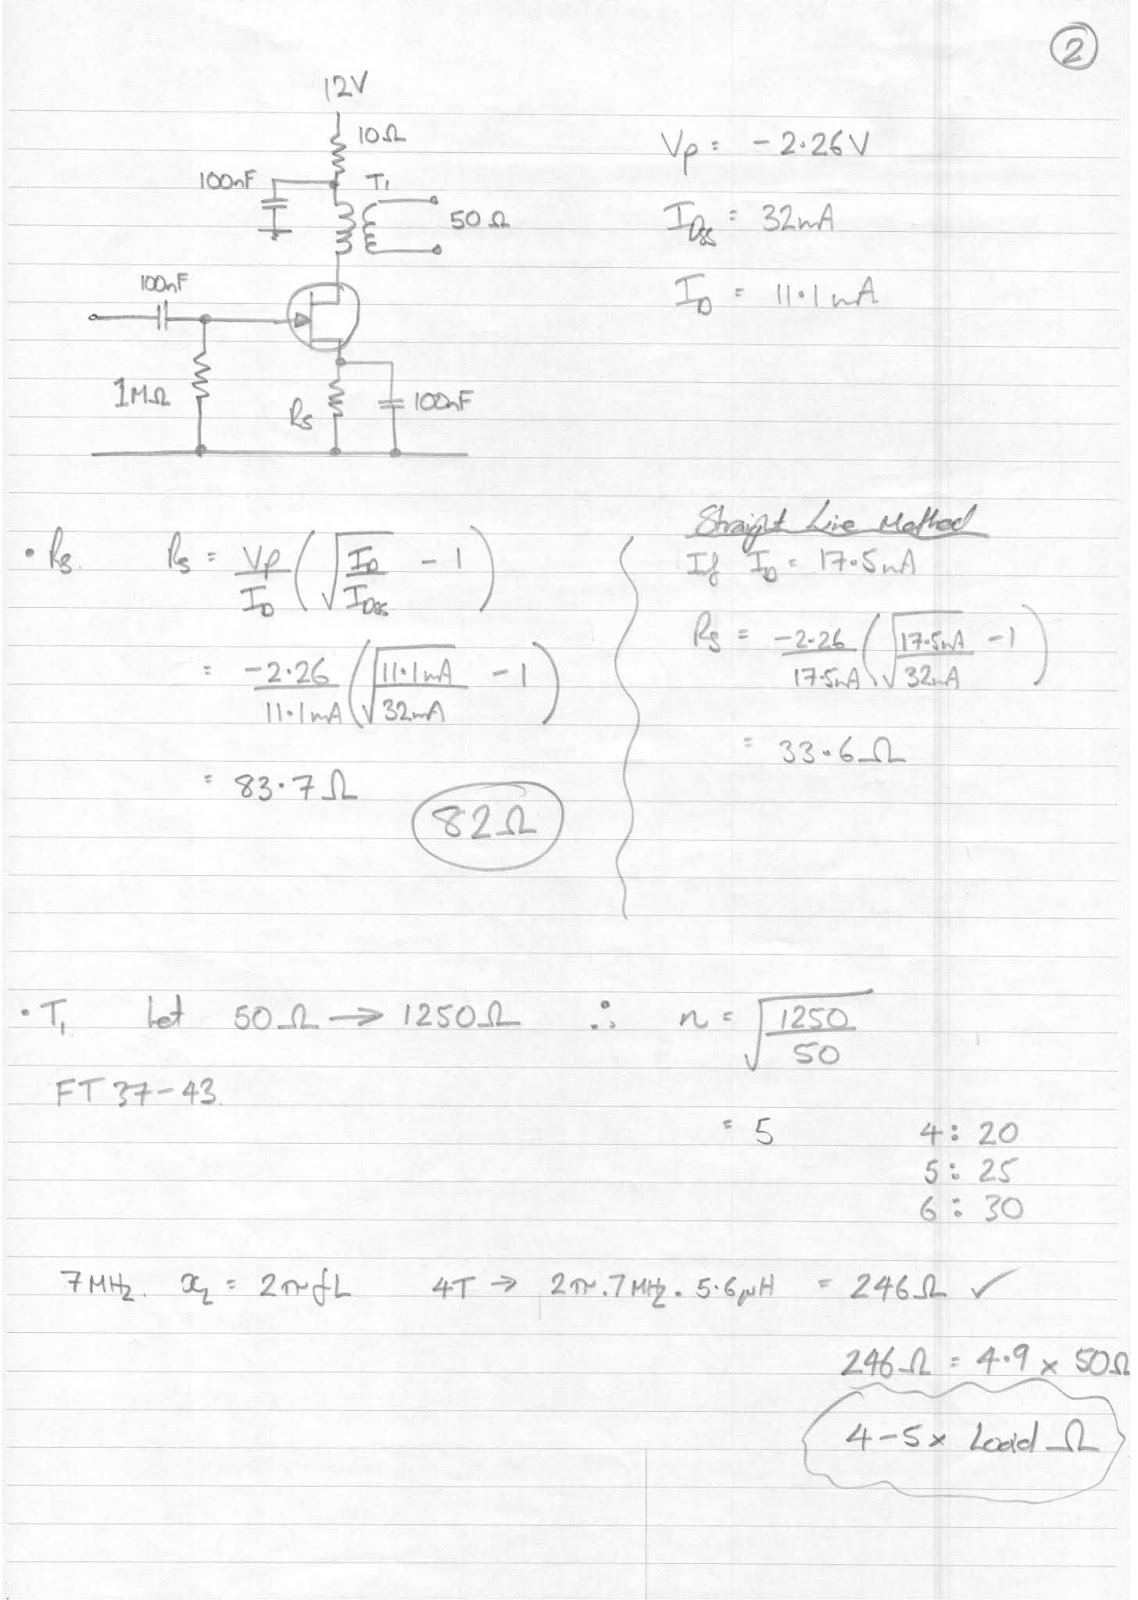 2
12V
10Ω
100nF
T1
50Ω
100nF
1MΩ
Rs
100nF
Vp = -2.26V
IDss = 32mA
ID = 11.1mA
• Rs. Rs = Vp/ID (√(ID/IDss) - 1)
= -2.26/11.1mA (√(11.1mA/32mA) - 1)
= 83.7Ω
82Ω
Straight Line Method
If ID = 17.5mA
Rs = -2.26/17.5mA (√(17.5mA/32mA) - 1)
= 33.6Ω
• T1 Let 50Ω → 1250Ω ∴ n = √(1250/50)
FT37-43.
= 5 4 : 20
5 : 25
6 : 30
7MHz. xL = 2πfL 4T → 2π.7MHz.5.6μH = 246Ω ✓
246Ω = 4.9 x 50Ω
4-5x Load Ω